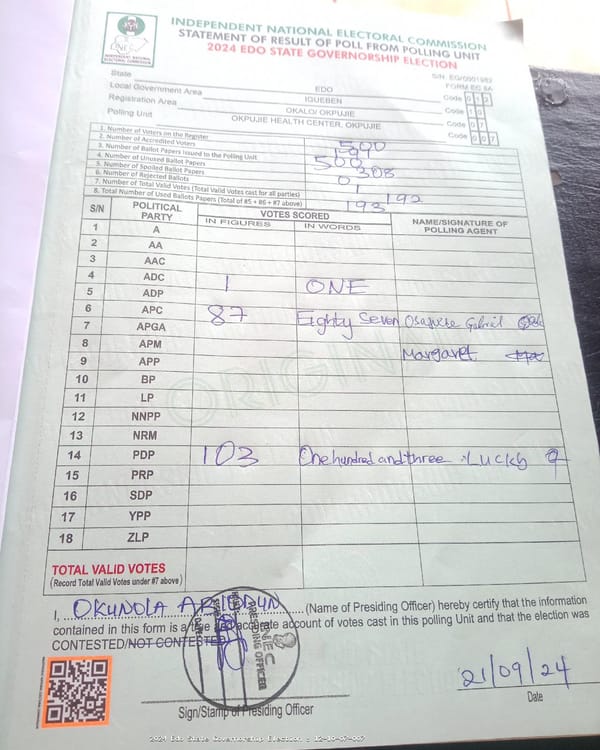 INDEPENDENT NATIONAL ELECTORAL COMMISSION
STATEMENT OF RESULT OF POLL FROM POLLING UNIT
2024 EDO STATE GOVERNORSHIP ELECTION
FORM EC 8A
State EDO Code 012
Local Government Area IGUEBEN Code 10
Registration Area OKALO/ OKPUJIE Code 07
Polling Unit OKPUJIE HEALTH CENTER, OKPUJIE Code 007
1. Number of Voters on the Register 500
2. Number of Accredited Voters
3. Number of Ballot Papers Issued to the Polling Unit 500
4. Number of Unused Ballot Papers 308
5. Number of Spoiled Ballot Papers 0
6. Number of Rejected Ballots 1
7. Number of Total Valid Votes (Total Valid Votes cast for all parties) 192
8. Total Number of Used Ballots Papers (Total of #5 + #6 + #7 above) 193
S/N POLITICAL PARTY VOTES SCORED NAME/SIGNATURE OF POLLING AGENT
IN FIGURES IN WORDS
1 A
2 AA
3 AAC
4 ADC 1 ONE
5 ADP
6 APC 87 Eighty Seven Gabriel
7 APGA
8 APM Margaret
9 APP
10 BP
11 LP
12 NNPP
13 NRM
14 PDP 103 One hundred and three Lucky
15 PRP
16 SDP
17 YPP
18 ZLP
ORIGINAL
TOTAL VALID VOTES
(Record Total Valid Votes under #7 above)
I, OKUNOLA ABIODUN (Name of Presiding Officer) hereby certify that the information
contained in this form is a true and accurate account of votes cast in this polling Unit and that the election was
CONTESTED/NOT CONTESTED
INEC
PRESIDING OFFICER
21/09/24
Sign/Stamp of Presiding Officer
Date
2024 Edo State Governorship Election : 12-10-07-007